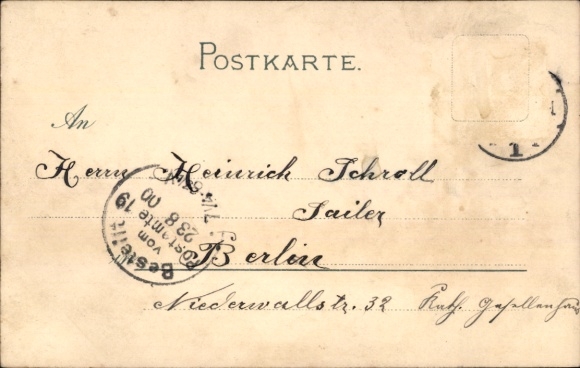 POSTKARTE.
An
Herrn Heinrich Schroll
Sailer
Berlin
Niederwallstr. 32 Kath. Gesellenhaus
Bestellt
vom
Postamte 19
23 8 00
1